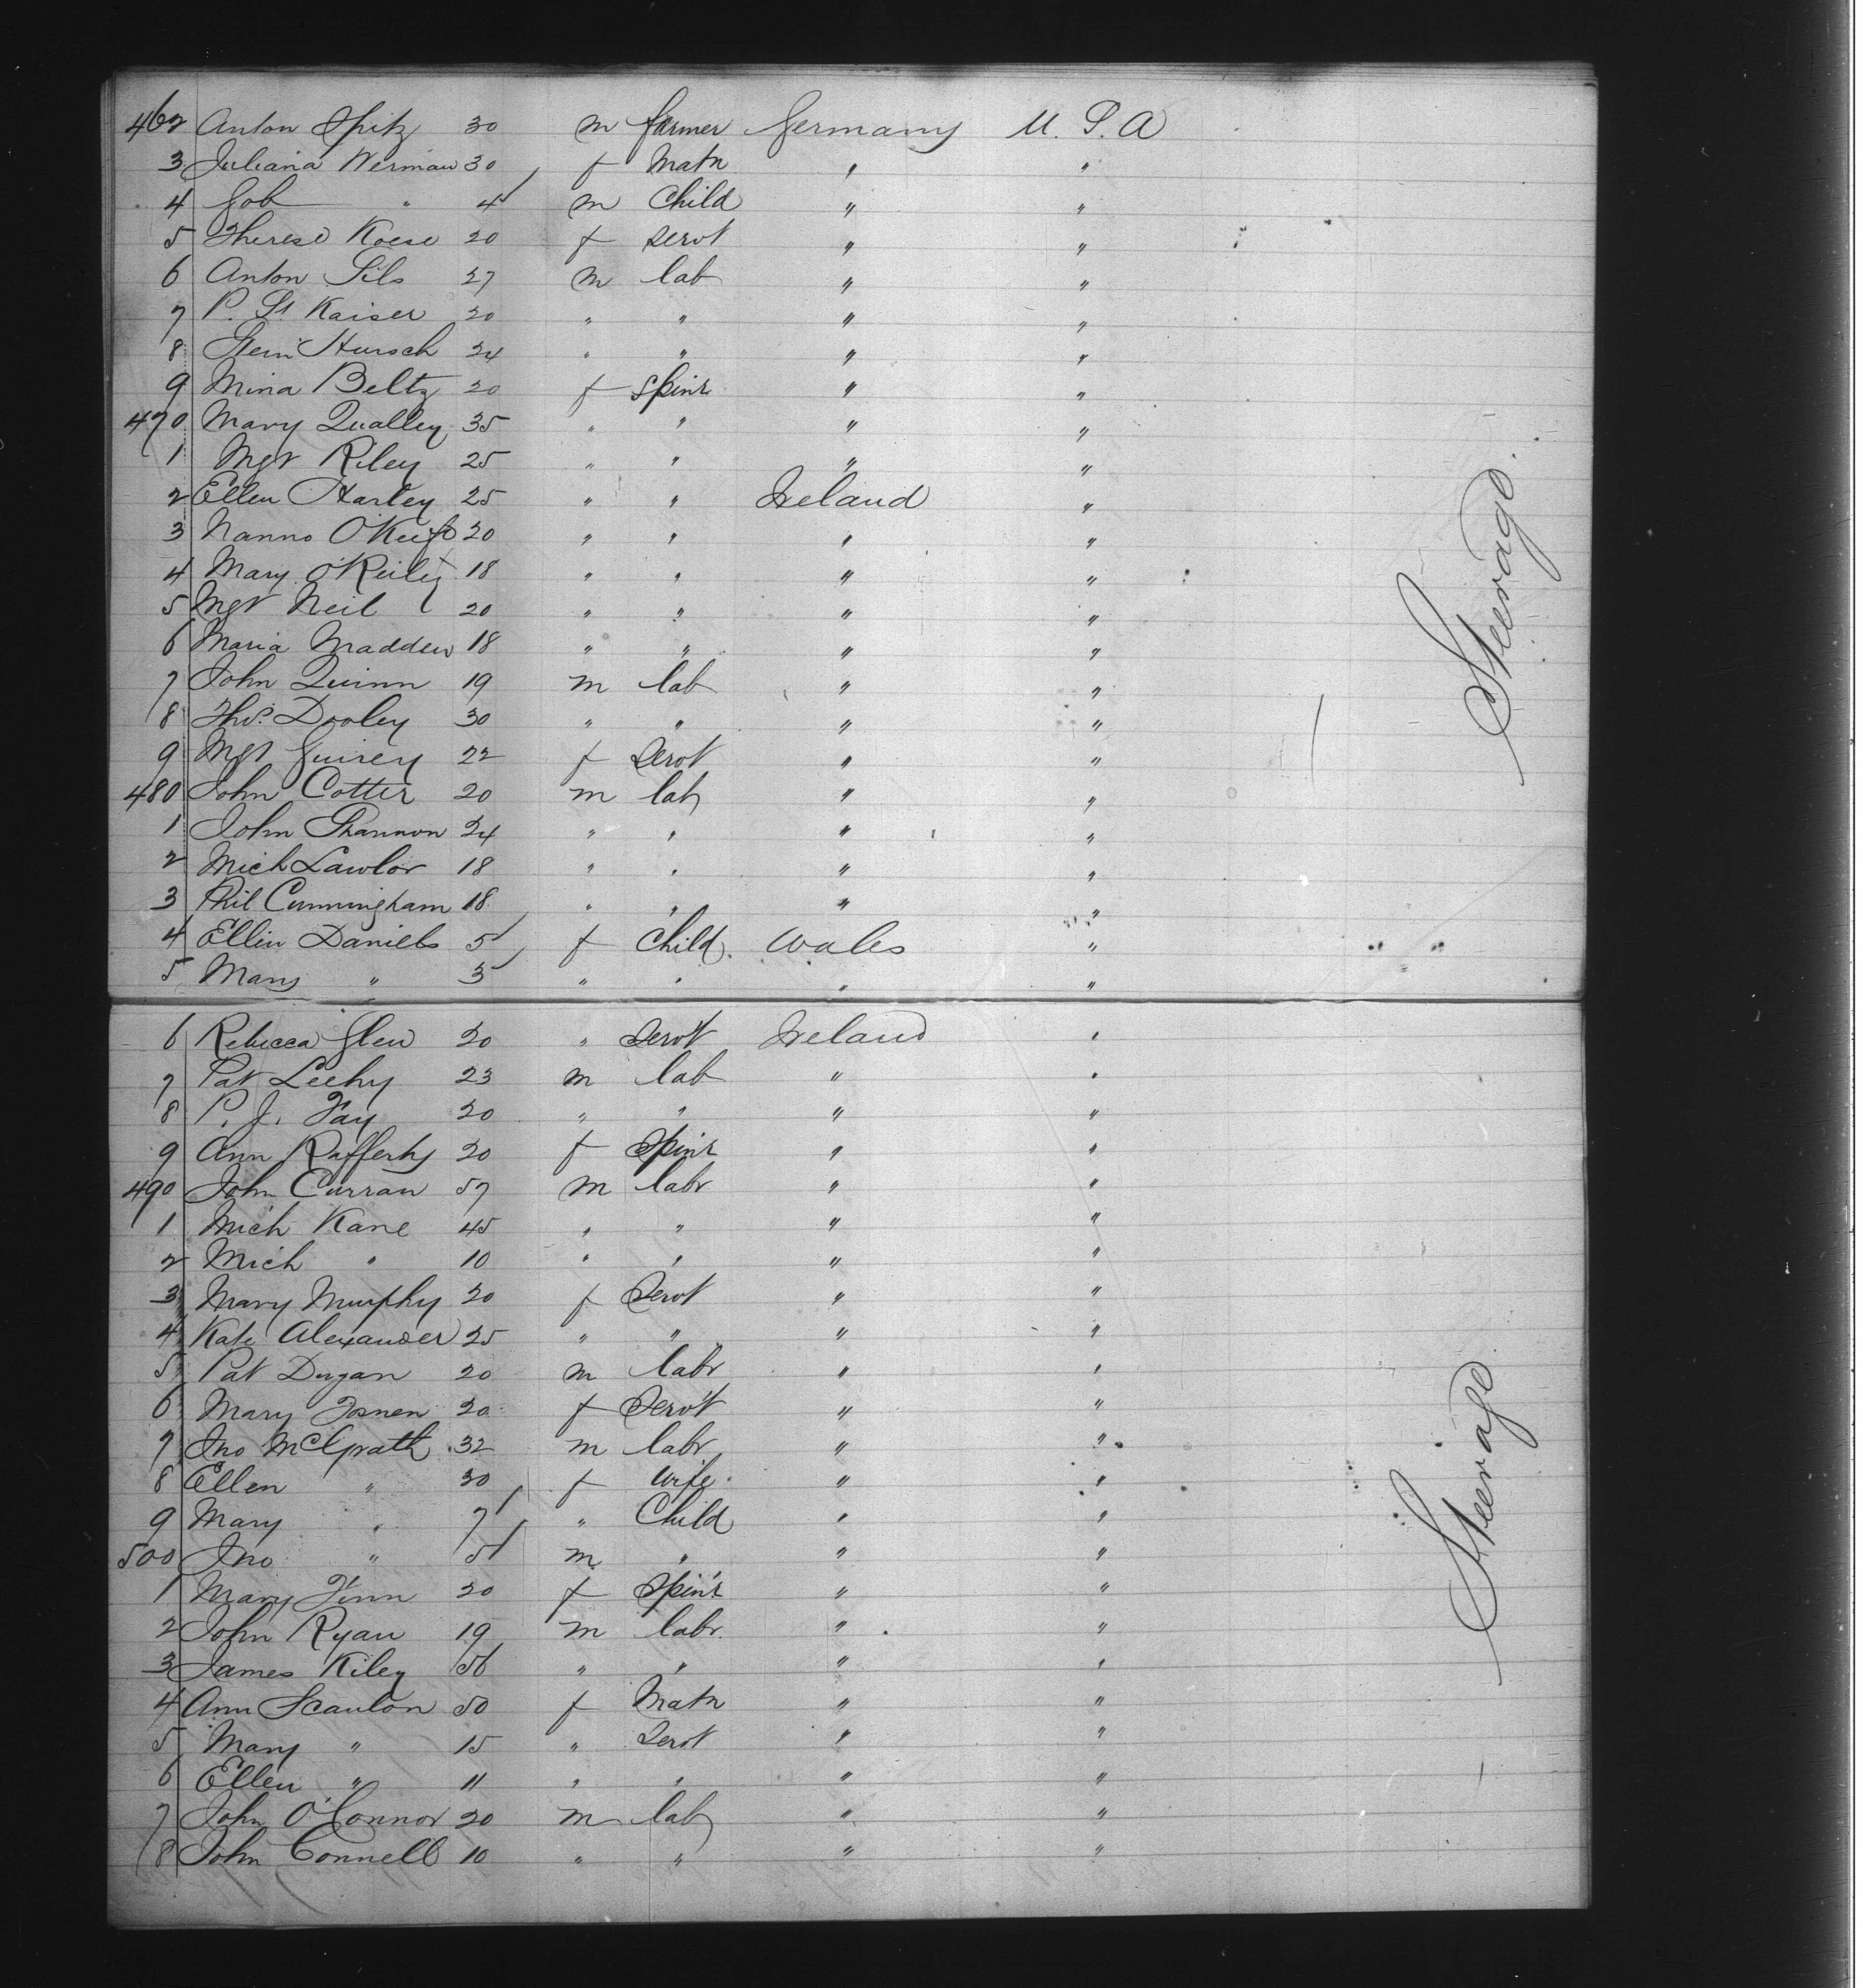 462 Anton Spitz 30 m farmer Germany U.S.A
3 Juliana Werman 30 f Matn " "
4 Gob " 4 m Child " "
5 Therese Koese 20 f servt " "
6 Anton Sils 27 m lab " "
7 P. St Kaiser 20 " " " "
8 Stein Hursch 24 " " " "
9 Mina Beltz 20 f spinr " "
470 Mary Qualley 35 " " " "
1 Mgt Riley 25 " " " "
2 Ellen Harley 25 " " Ireland "
3 Nanno O'Keife 20 " " " "
4 Mary O'Reiley 18 " " " "
5 Mgt Neil 20 " " " "
6 Maria Madden 18 " " " "
7 John Quinn 19 m lab " "
8 Thos. Dooley 30 " " " "
9 Mgt Guirey 22 f Servt " "
480 John Cotter 20 m lab " "
1 John Shannon 24 " " " "
2 Mich Lawlor 18 " " " "
3 Phil Cunningham 18 " " " "
4 Ellin Daniels 5 f Child. Wales "
5 Mary " 3 " " " "
Steerage.
6 Rebecca Glen 20 " Serv't Ireland "
7 Pat Leehy 23 m lab " "
8 P. J. Fay 20 " " " "
9 Ann Rafferty 20 f Spinr " "
490 John Curran 57 m labr " "
1 Mich Kane 45 " " " "
2 Mich " 10 " " " "
3 Mary Murphy 20 f Servt " "
4 Kate Alexander 25 " " " "
5 Pat Dugan 20 m labr " "
6 Mary 20 f Serv't " "
7 Jno McGrath 32 m labr " "
8 Ellen " 30 f wife " "
9 Mary " 7 " Child " "
500 Jno " 5 m " " "
1 Mary Finn 20 f Spin'r " "
2 John Ryan 19 m labr. " "
3 James Kiley 56 " " " "
4 Ann Scanlon 50 f Matn " "
5 Mary " 15 " Servt " "
6 Ellen " 11 " " " "
7 John O'Connor 20 m lab " "
8 John Connell 10 " " " "
Steerage